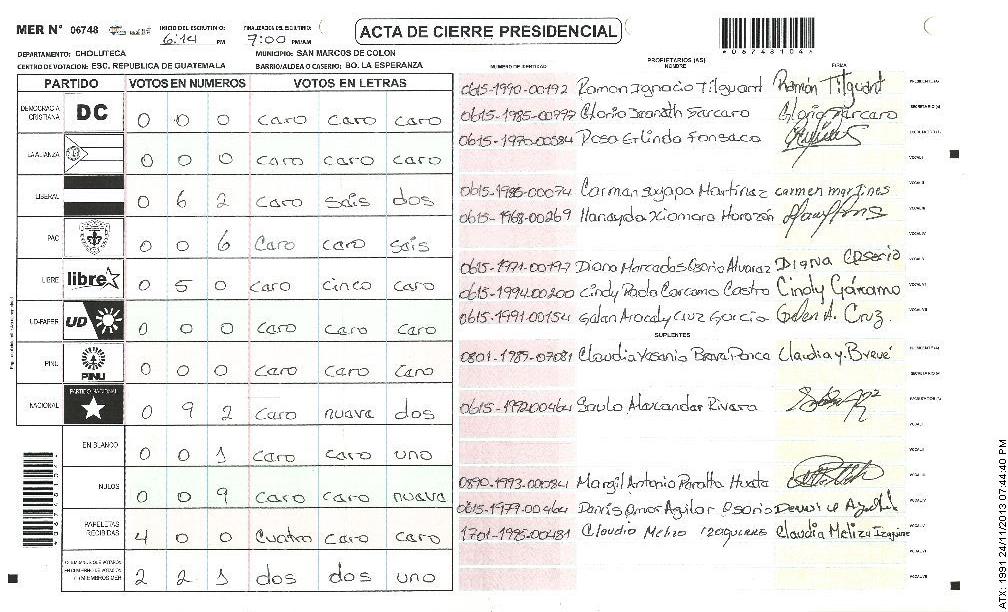 MER Nº 06748 INICIO DEL ESCRUTINIO: 6:14 PM FINALIZACION DEL ESCRUTINIO: 7:00 PM/AM
ACTA DE CIERRE PRESIDENCIAL
DEPARTAMENTO: CHOLUTECA MUNICIPIO: SAN MARCOS DE COLON
CENTRO DE VOTACION: ESC. REPUBLICA DE GUATEMALA BARRIO/ALDEA O CASERIO: BO. LA ESPERANZA
PARTIDO VOTOS EN NUMEROS VOTOS EN LETRAS
DEMOCRACIA CRISTIANA DC 0 0 0 caro caro caro
LA ALIANZA 0 0 0 caro caro caro
LIBERAL 0 6 2 caro sais dos
PAC 0 0 6 caro caro sais
LIBRE libre 0 5 0 caro cinco caro
UD-FAPER UD 0 0 0 caro caro caro
PINU PINU 0 0 0 caro caro caro
NACIONAL PARTIDO NACIONAL 0 9 2 caro nuava dos
EN BLANCO 0 0 1 caro caro uno
NULOS 0 0 9 caro caro nuava
PAPELETAS RECIBIDAS 4 0 0 cuatro caro caro
2 2 1 dos dos uno
NUMERO DE IDENTIDAD PROPIETARIOS (AS) NOMBRE FIRMA
0615-1990-00192 Ramon Ignacio Tilguant Ramón Tilguant
0615-1985-00797
0615-1970-00584 Rosa Erlinda Fonsaca
0615-1985-00074 Carman suyapa Martinaz carmen martines
0615-1968-00269
0615-1971-00197 Diana Marcadas Osorio Alvaraz Diana Osorio
0615-1994-00200 Cindy Paola Carcamo Castro Cindy Cárcamo
0615-1991-00154 Galan Aracaly Cruz Garcia Galen A. Cruz.
SUPLENTES
0801-1985-07081 Claudia Yasania Brava Ponca Claudia y. Brevé
0615-1992-00464 Saulo Alaxandar Rivara
0890-1993-00084 Margil Antonio Paralta Huata
0615-1979-00464 Danis Omar Aguilar Osorio
1701-1985-00481 Claudia Meliza Izaguirre
06748104
ATX: 1991 24/11/2013 07:44:40 PM